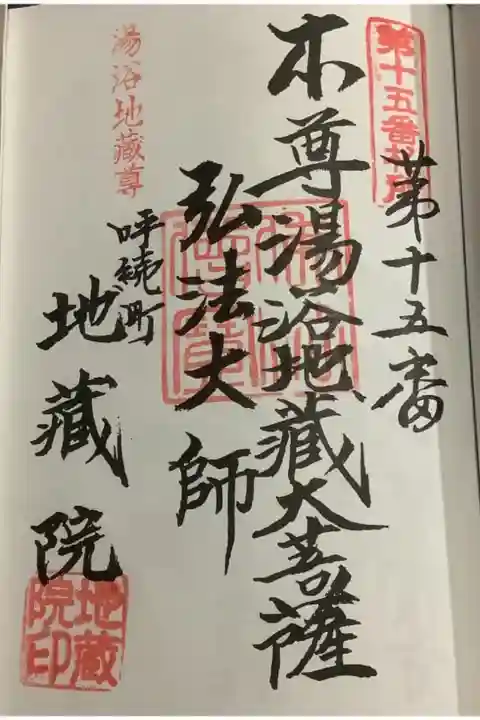 第十五番札所
第十五番
本尊湯浴地蔵大菩薩
弘法大師
湯浴地蔵尊
呼続町
地蔵院
地蔵院印